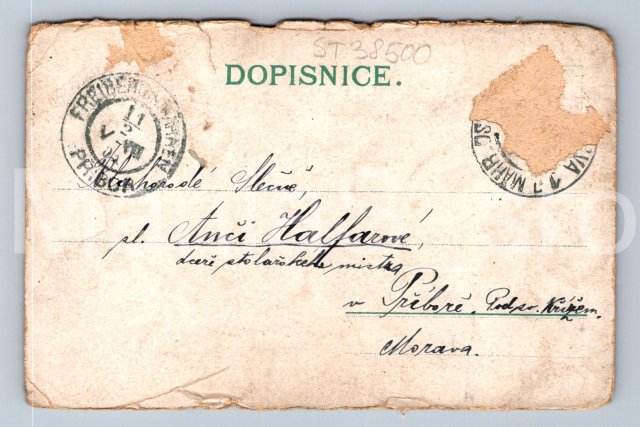 ST 38500
DOPISNICE.
FREIBERG IN MÄHREN
11
2
VIII
PŘÍBOR
MÄHR.
Blahorodé Slečně,
sl. Anči Halfarové,
dceři stolařského mistra
v Příboře. Pod sv. Křížem.
Morava.